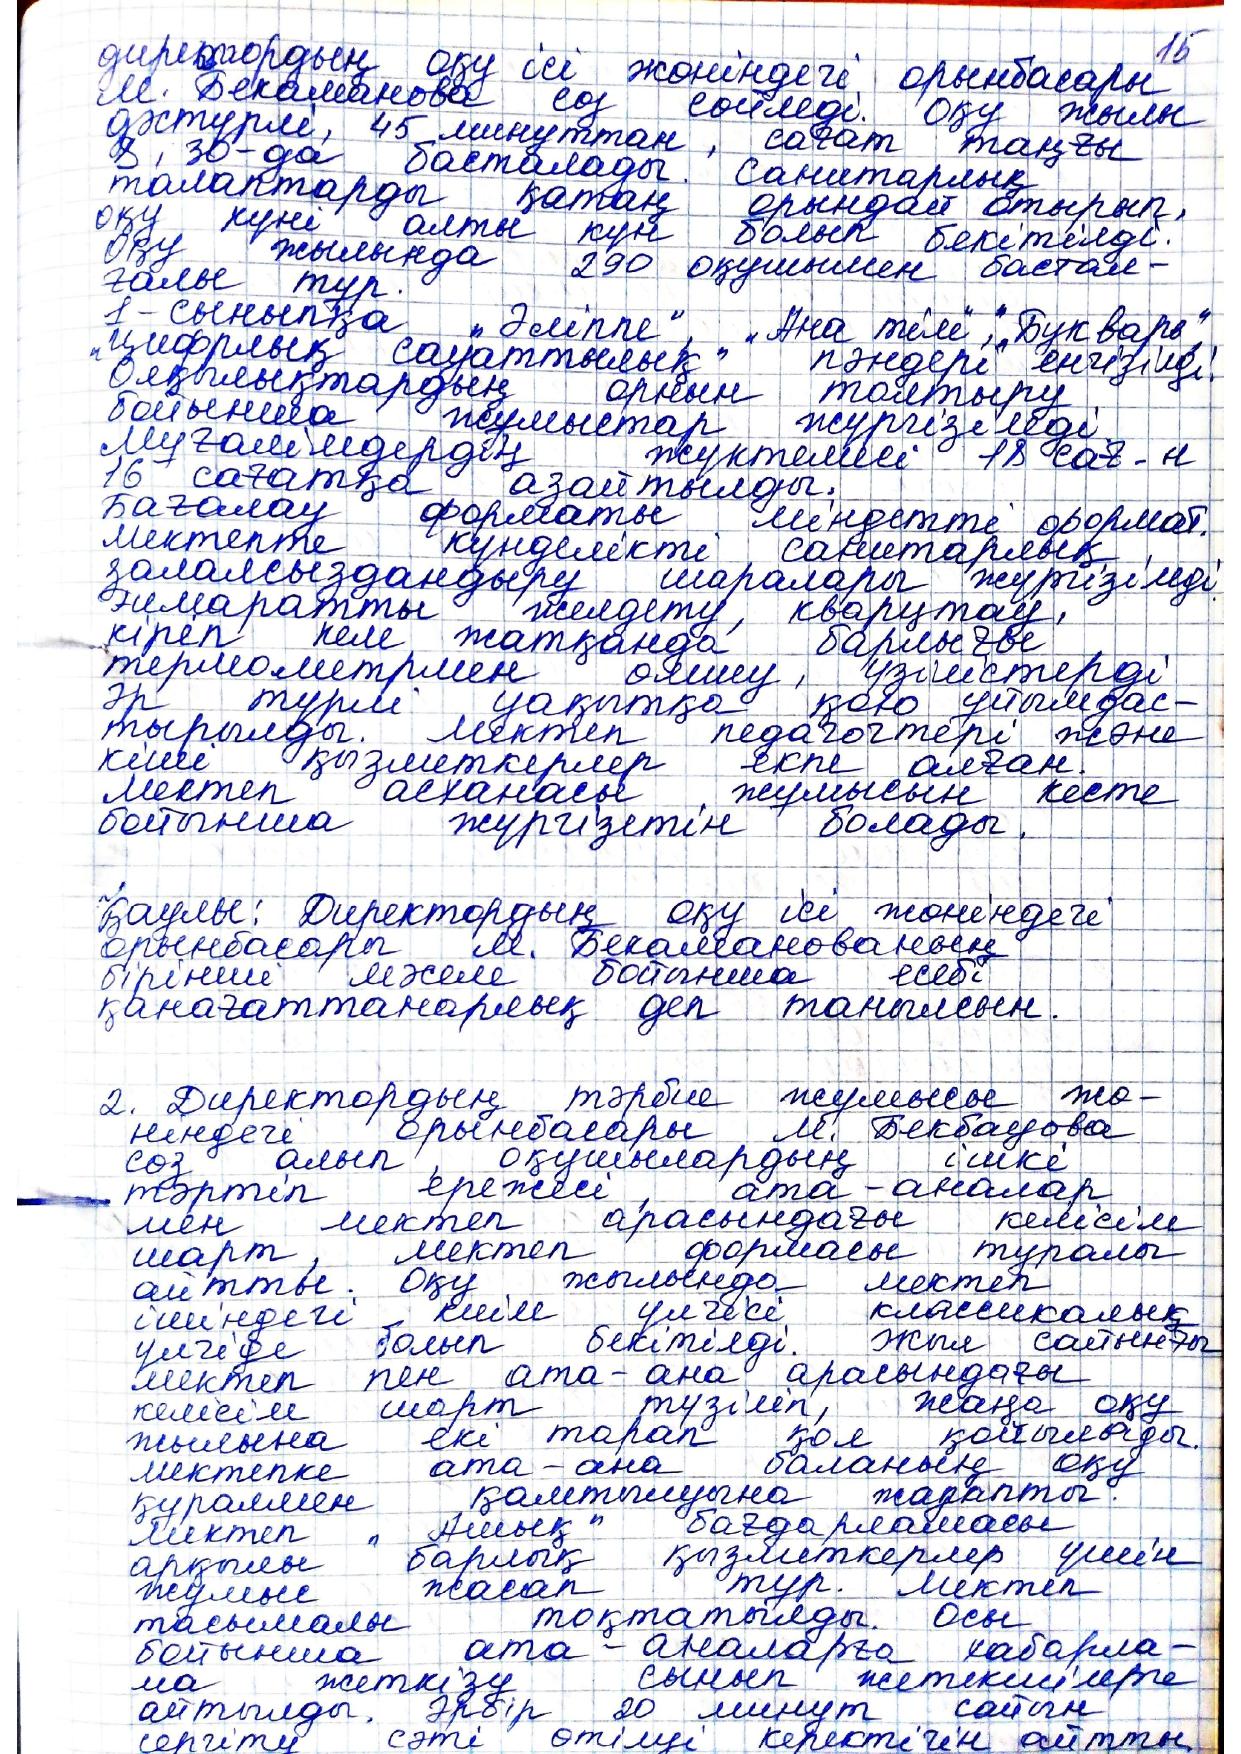 15
директордың оқу ісі жөніндегі орынбасары
М. Бекаманова сөз сөйледі. Оқу жылы
дәстүрлі, 45 минуттан, сағат таңғы
8,30-да басталады. Санитарлық
талаптарды қатаң орындай отырып,
оқу күні алты күн болып бекітілді.
Оқу жылында 290 оқушымен бастал-
ғалы тұр.
1-сыныпқа „Әліппе", „Ана тілі", „Букварь",
„Цифрлық сауаттылық" пәндері енгізілді.
Олқылықтардың орнын толтыру
бойынша жұмыстар жүргізілді
Мұғалімдердің жүктемесі 18 сағ-н
16 сағатқа азайтылды.
Бағалау форматы міндетті формат.
Мектепте күнделікті санитарлық,
залалсыздандыру шаралары жүргізілді.
Ғимаратты желдету, кварцтау,
кіріп келе жатқанда барлығы
термометрмен өлшеу, үзілістерді
әр түрлі уақытқа қою ұйымдас-
тырылды. Мектеп педагогтері және
кіші қызметкерлер екпе алған.
Мектеп асханасы жұмысын кесте
бойынша жүргізетін болады.
Қаулы: Директордың оқу ісі жөніндегі
орынбасары М. Бекаманованың
бірінші мәселе бойынша есебі
қанағаттанарлық деп танылсын.
2. Директордың тәрбие жұмысы жө-
ніндегі орынбасары М. Бекбауова
сөз алып, оқушылардың ішкі
тәртіп ережесі, ата-аналар
мен мектеп арасындағы келісім
шарт, мектеп формасы туралы
айтты. Оқу жылында мектеп
ішіндегі киім үлгісі классикалық
үлгіде болып бекітілді. Жыл сайынғы
мектеп пен ата-ана арасындағы
келісім шарт түзіліп, жаңа оқу
жылына екі тарап қол қойылды.
Мектепке ата-ана баланың оқу
құралмен қамтылуына жауапты.
Мектеп „Ашық" бағдарламасы
арқылы барлық қызметкерлер үшін
жұмыс жасап тұр. Мектеп
тасымалы тоқтатылды. Осы
бойынша ата-аналарға хабарла-
ма жеткізу сынып жетекшілерге
айтылды. Әрбір 20 минут сайын
сергіту сәті өтілуі керектігін айтты.